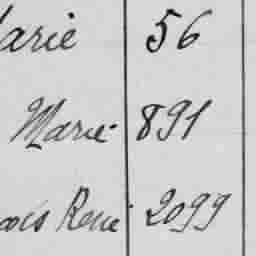 Marie 56
Marie 891
ois René 2099